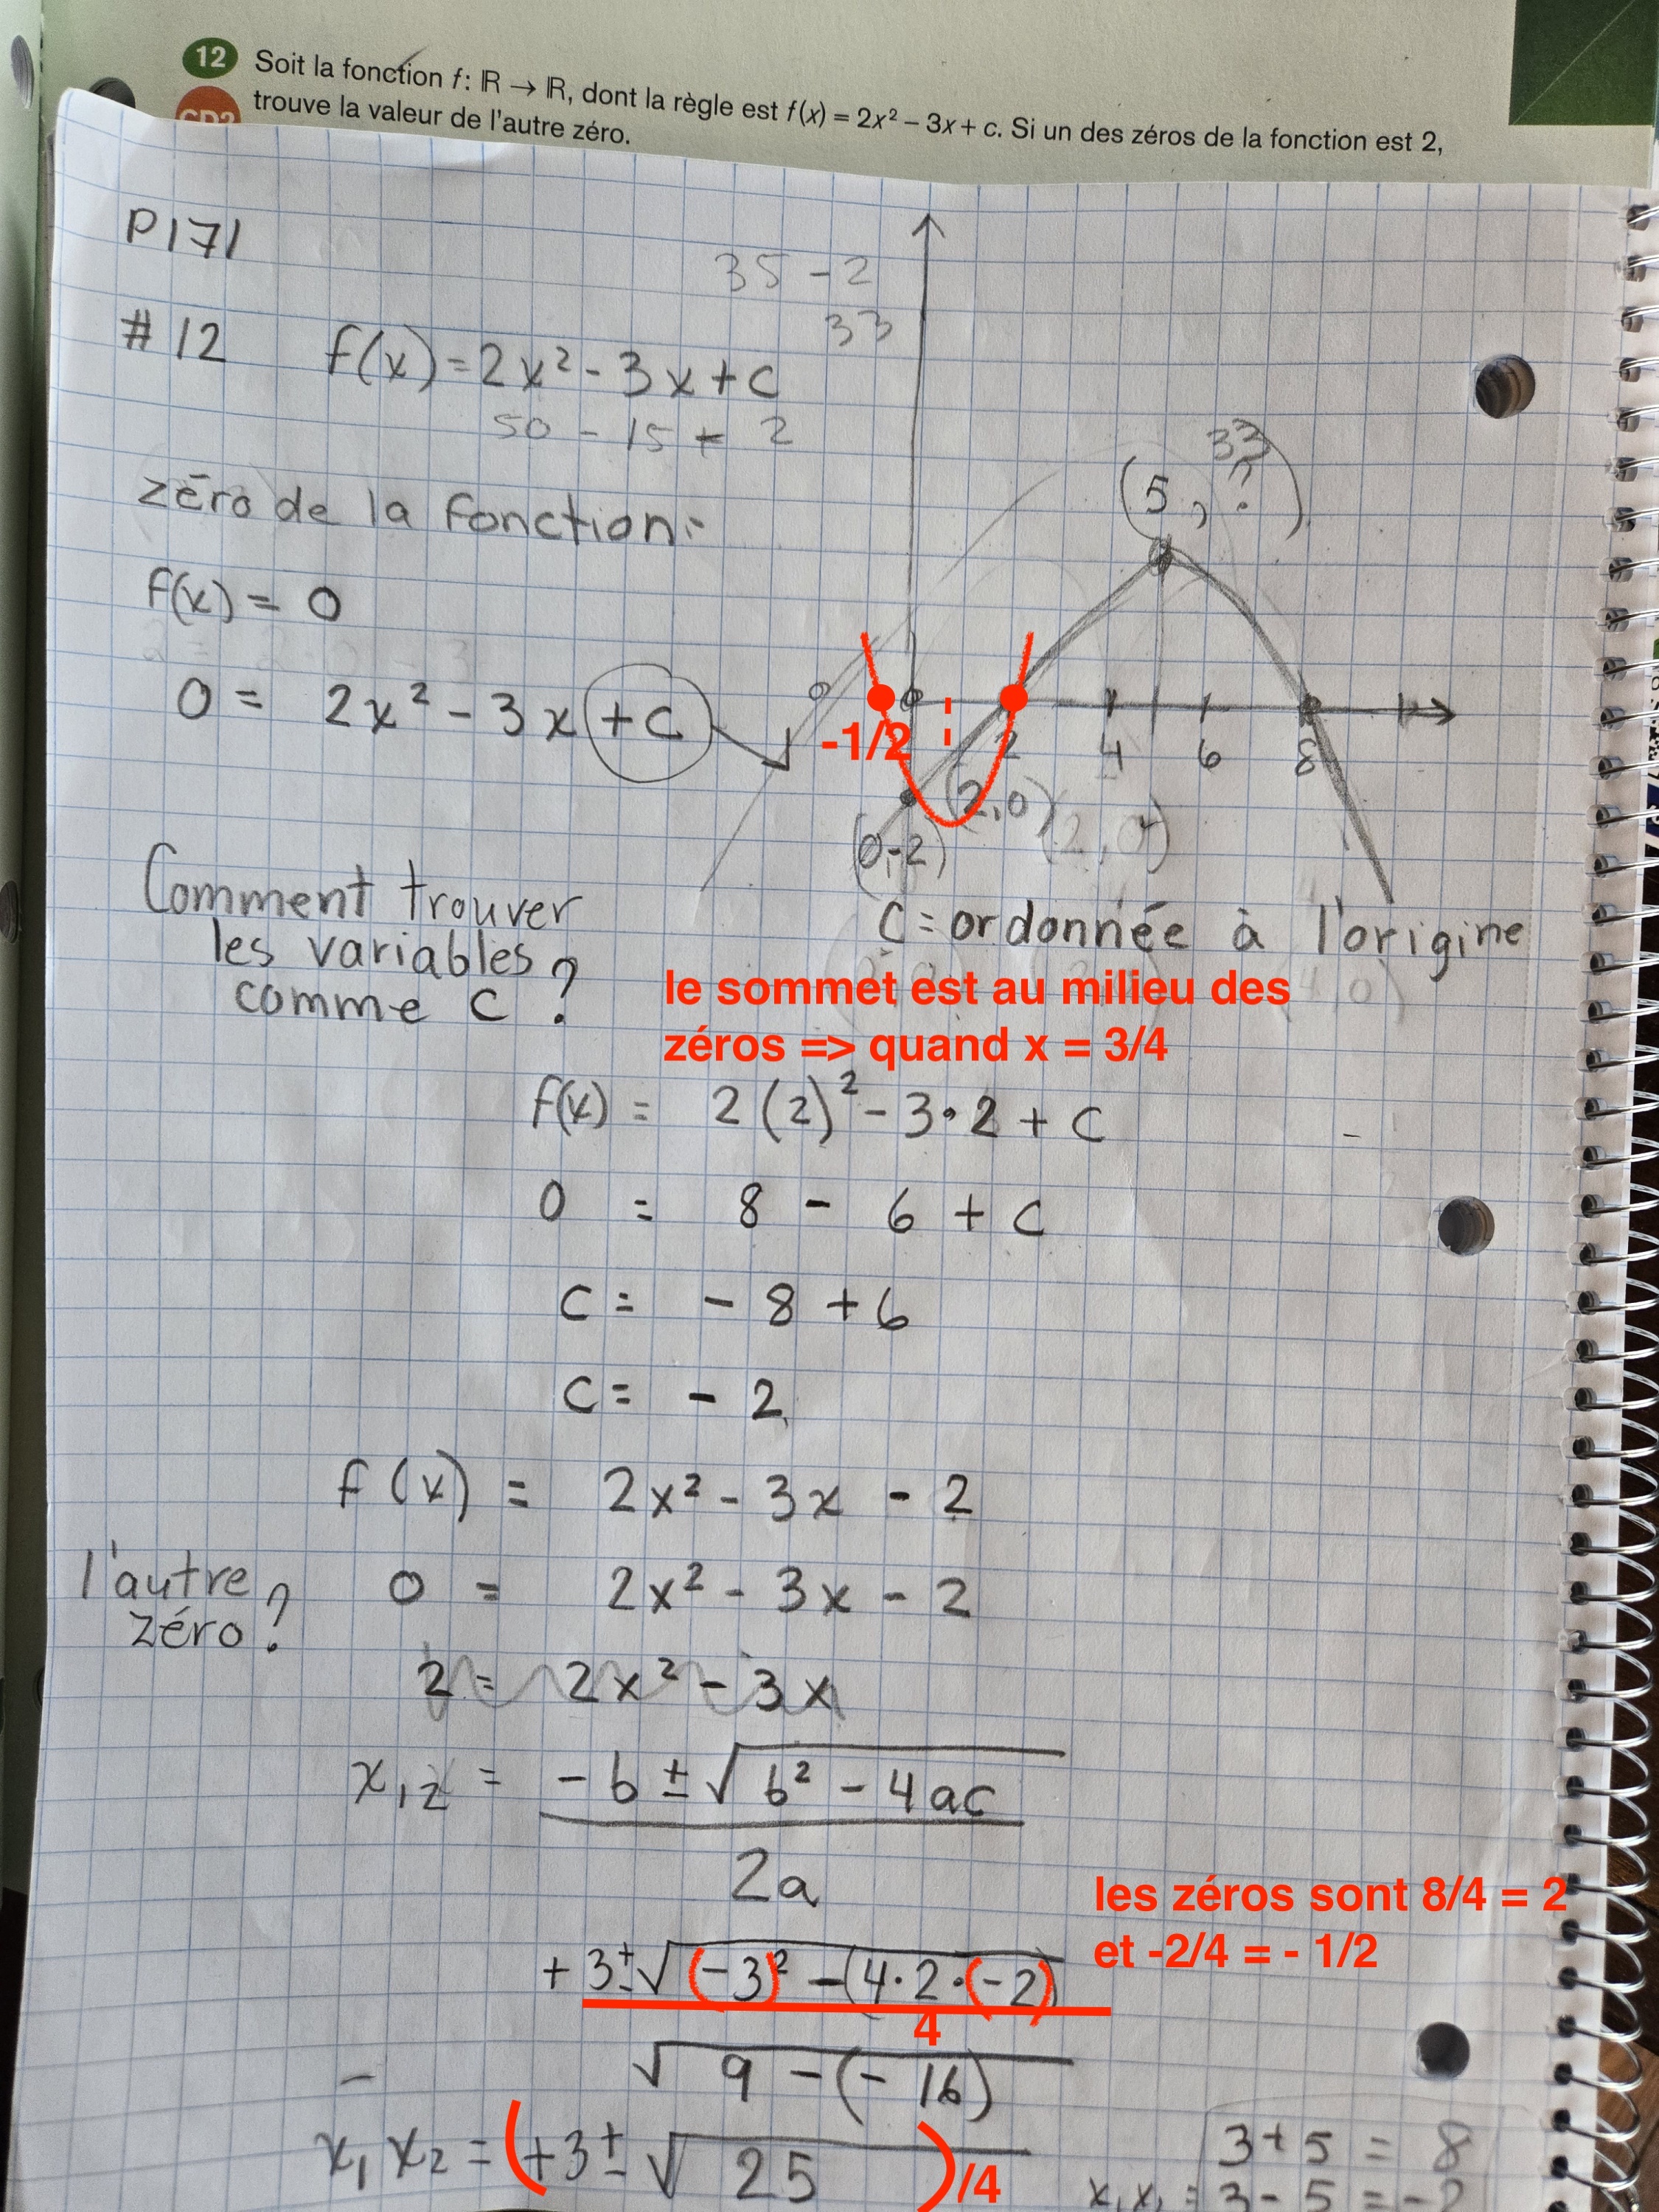 12 Soit la fonction f: ℝ → ℝ, dont la règle est f(x) = 2x² – 3x + c. Si un des zéros de la fonction est 2,
CD2 trouve la valeur de l'autre zéro.
P171
35 - 2
33
# 12 f(x) = 2x² - 3x + c
50 - 15 + 2
zéro de la fonction:
(5, ?)
33
f(x) = 0
0 = 2x² - 3x + c
-1/2
2 4 6 8
(2,0) (2,0)
(0,-2)
Comment trouver
les variables
comme c ?
c = ordonnée à l'origine
le sommet est au milieu des
zéros => quand x = 3/4
f(x) = 2(2)² - 3·2 + c
0 = 8 - 6 + c
c = - 8 + 6
c = - 2
f(x) = 2x² - 3x - 2
l'autre
zéro?
0 = 2x² - 3x - 2
2 = 2x² - 3x
x₁,₂ = -b ± √b² - 4ac
2a
les zéros sont 8/4 = 2
et -2/4 = - 1/2
+3 ± √(-3)² - (4·2·(-2)
4
√9 - (-16)
x₁ x₂ = (+3 ± √25)/4
3 + 5 = 8
x₁x₂ = 3 - 5 = -2